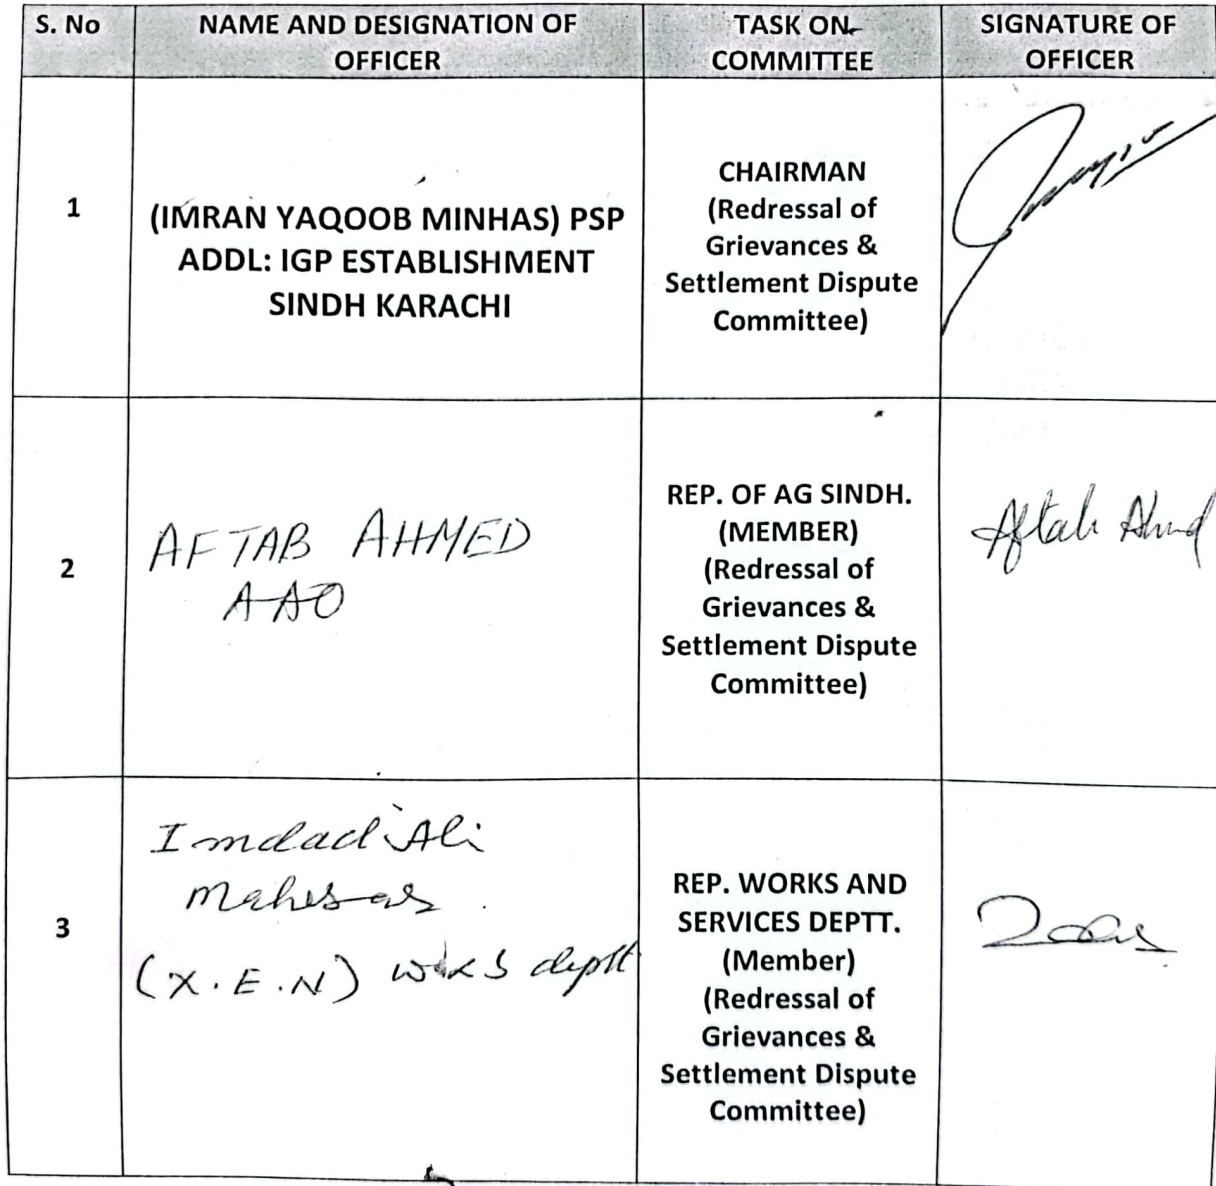 S. No
NAME AND DESIGNATION OF
OFFICER
TASK ON
COMMITTEE
SIGNATURE OF
OFFICER
1
(IMRAN YAQOOB MINHAS) PSP
ADDL: IGP ESTABLISHMENT
SINDH KARACHI
CHAIRMAN
(Redressal of
Grievances &
Settlement Dispute
Committee)
2
AFTAB AHMED
AAO
REP. OF AG SINDH.
(MEMBER)
(Redressal of
Grievances &
Settlement Dispute
Committee)
Aftab Ahmd
3
Imdad Ali
Mahesar.
(X.E.N) works deptt
REP. WORKS AND
SERVICES DEPTT.
(Member)
(Redressal of
Grievances &
Settlement Dispute
Committee)